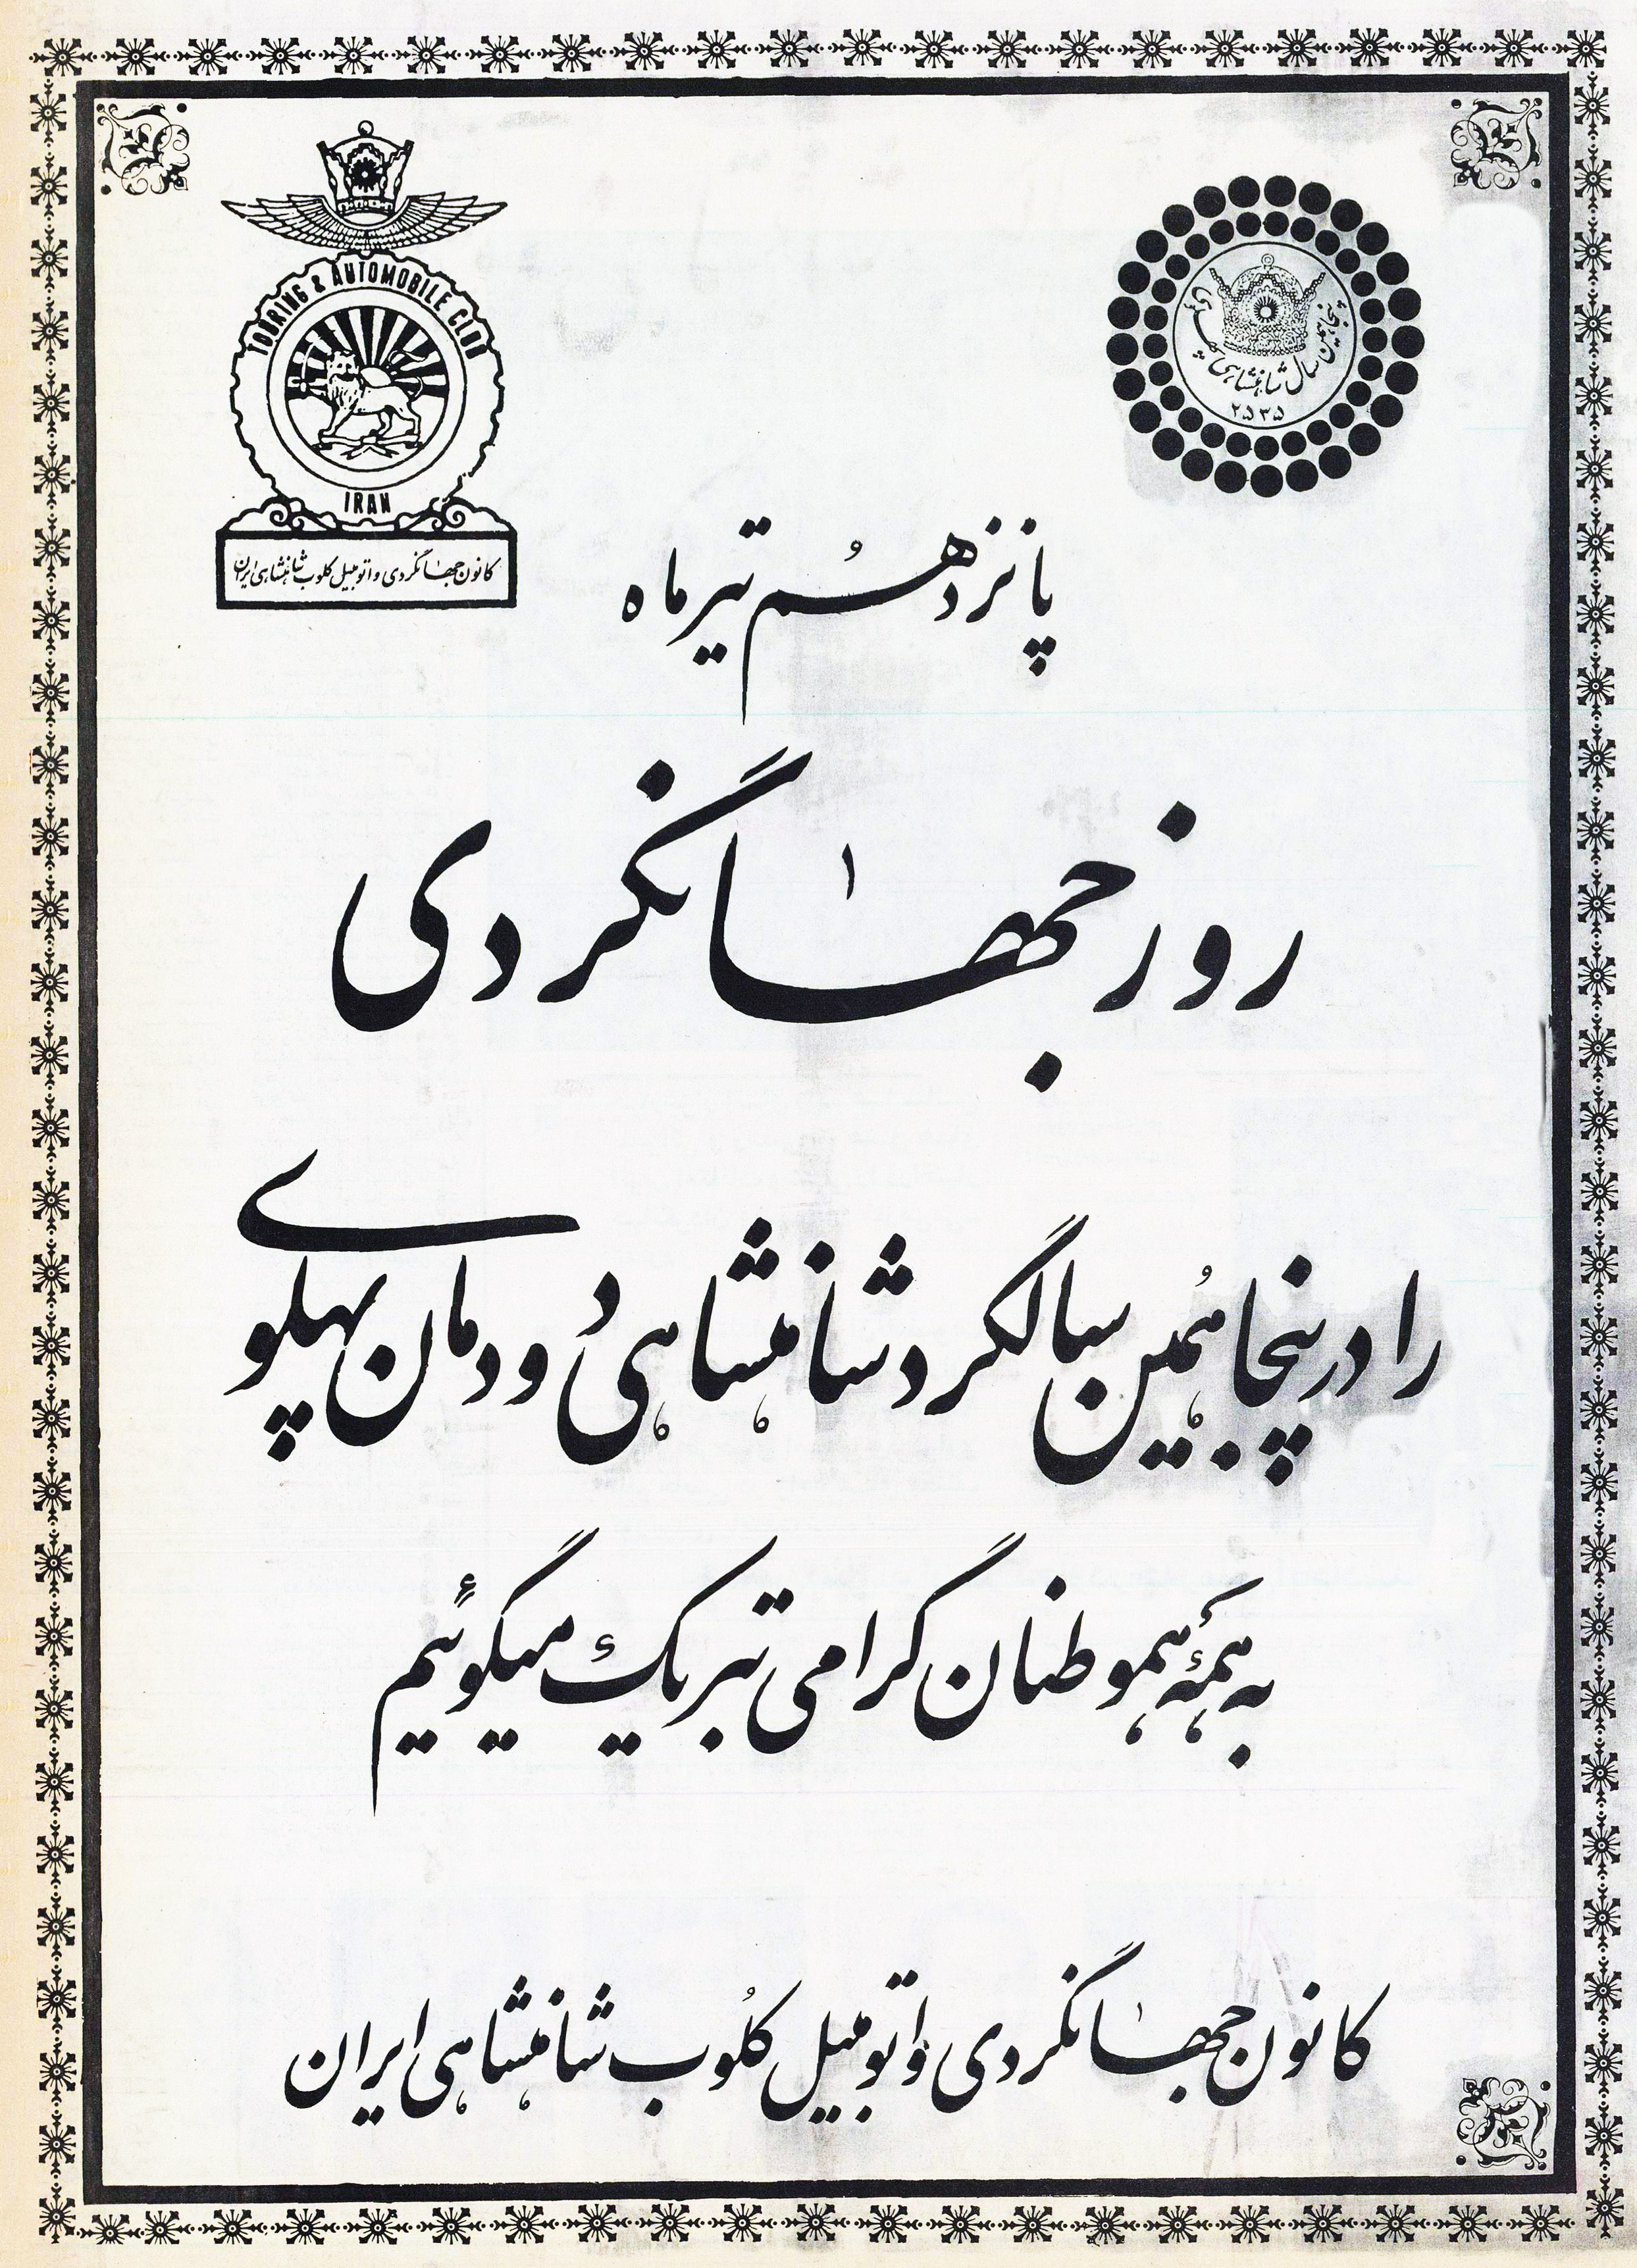 TOURING & AUTOMOBILE CLUB
IRAN
کانون جهانگردی و اتومبیل کلوب شاهنشاهی ایران
پنجاهمین سال شاهنشاهی پهلوی
۲۵۳۵
پانزدهُم تیرماه
روز جهانگردی
را در پنجاهُمین سالگرد شاهنشاهی دُودمان پهلوی
به همهٔ هموطنان گرامی تبریک میگوئیم
کانون جهانگردی و اتومبیل کلُوب شاهنشاهی ایران